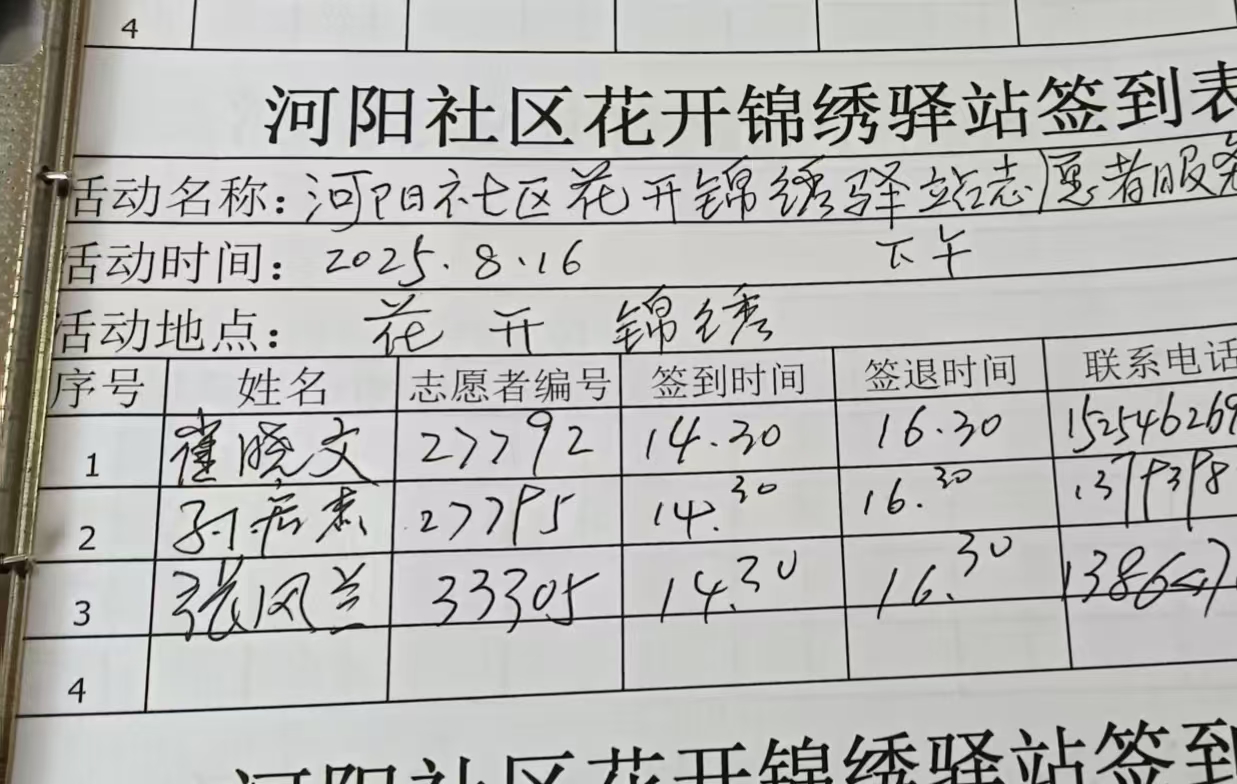 4
河阳社区花开锦绣驿站签到表
活动名称: 河阳社区花开锦绣驿站志愿者服务
活动时间: 2025.8.16 下午
活动地点: 花开锦绣
序号 姓名 志愿者编号 签到时间 签退时间 联系电话
1 崔晓文 27792 14.30 16.30 152546269
2 孙 27795 14.30 16.30 1379398
3 张风兰 33305 14.30 16.30 138647
4
河阳社区花开锦绣驿站签到